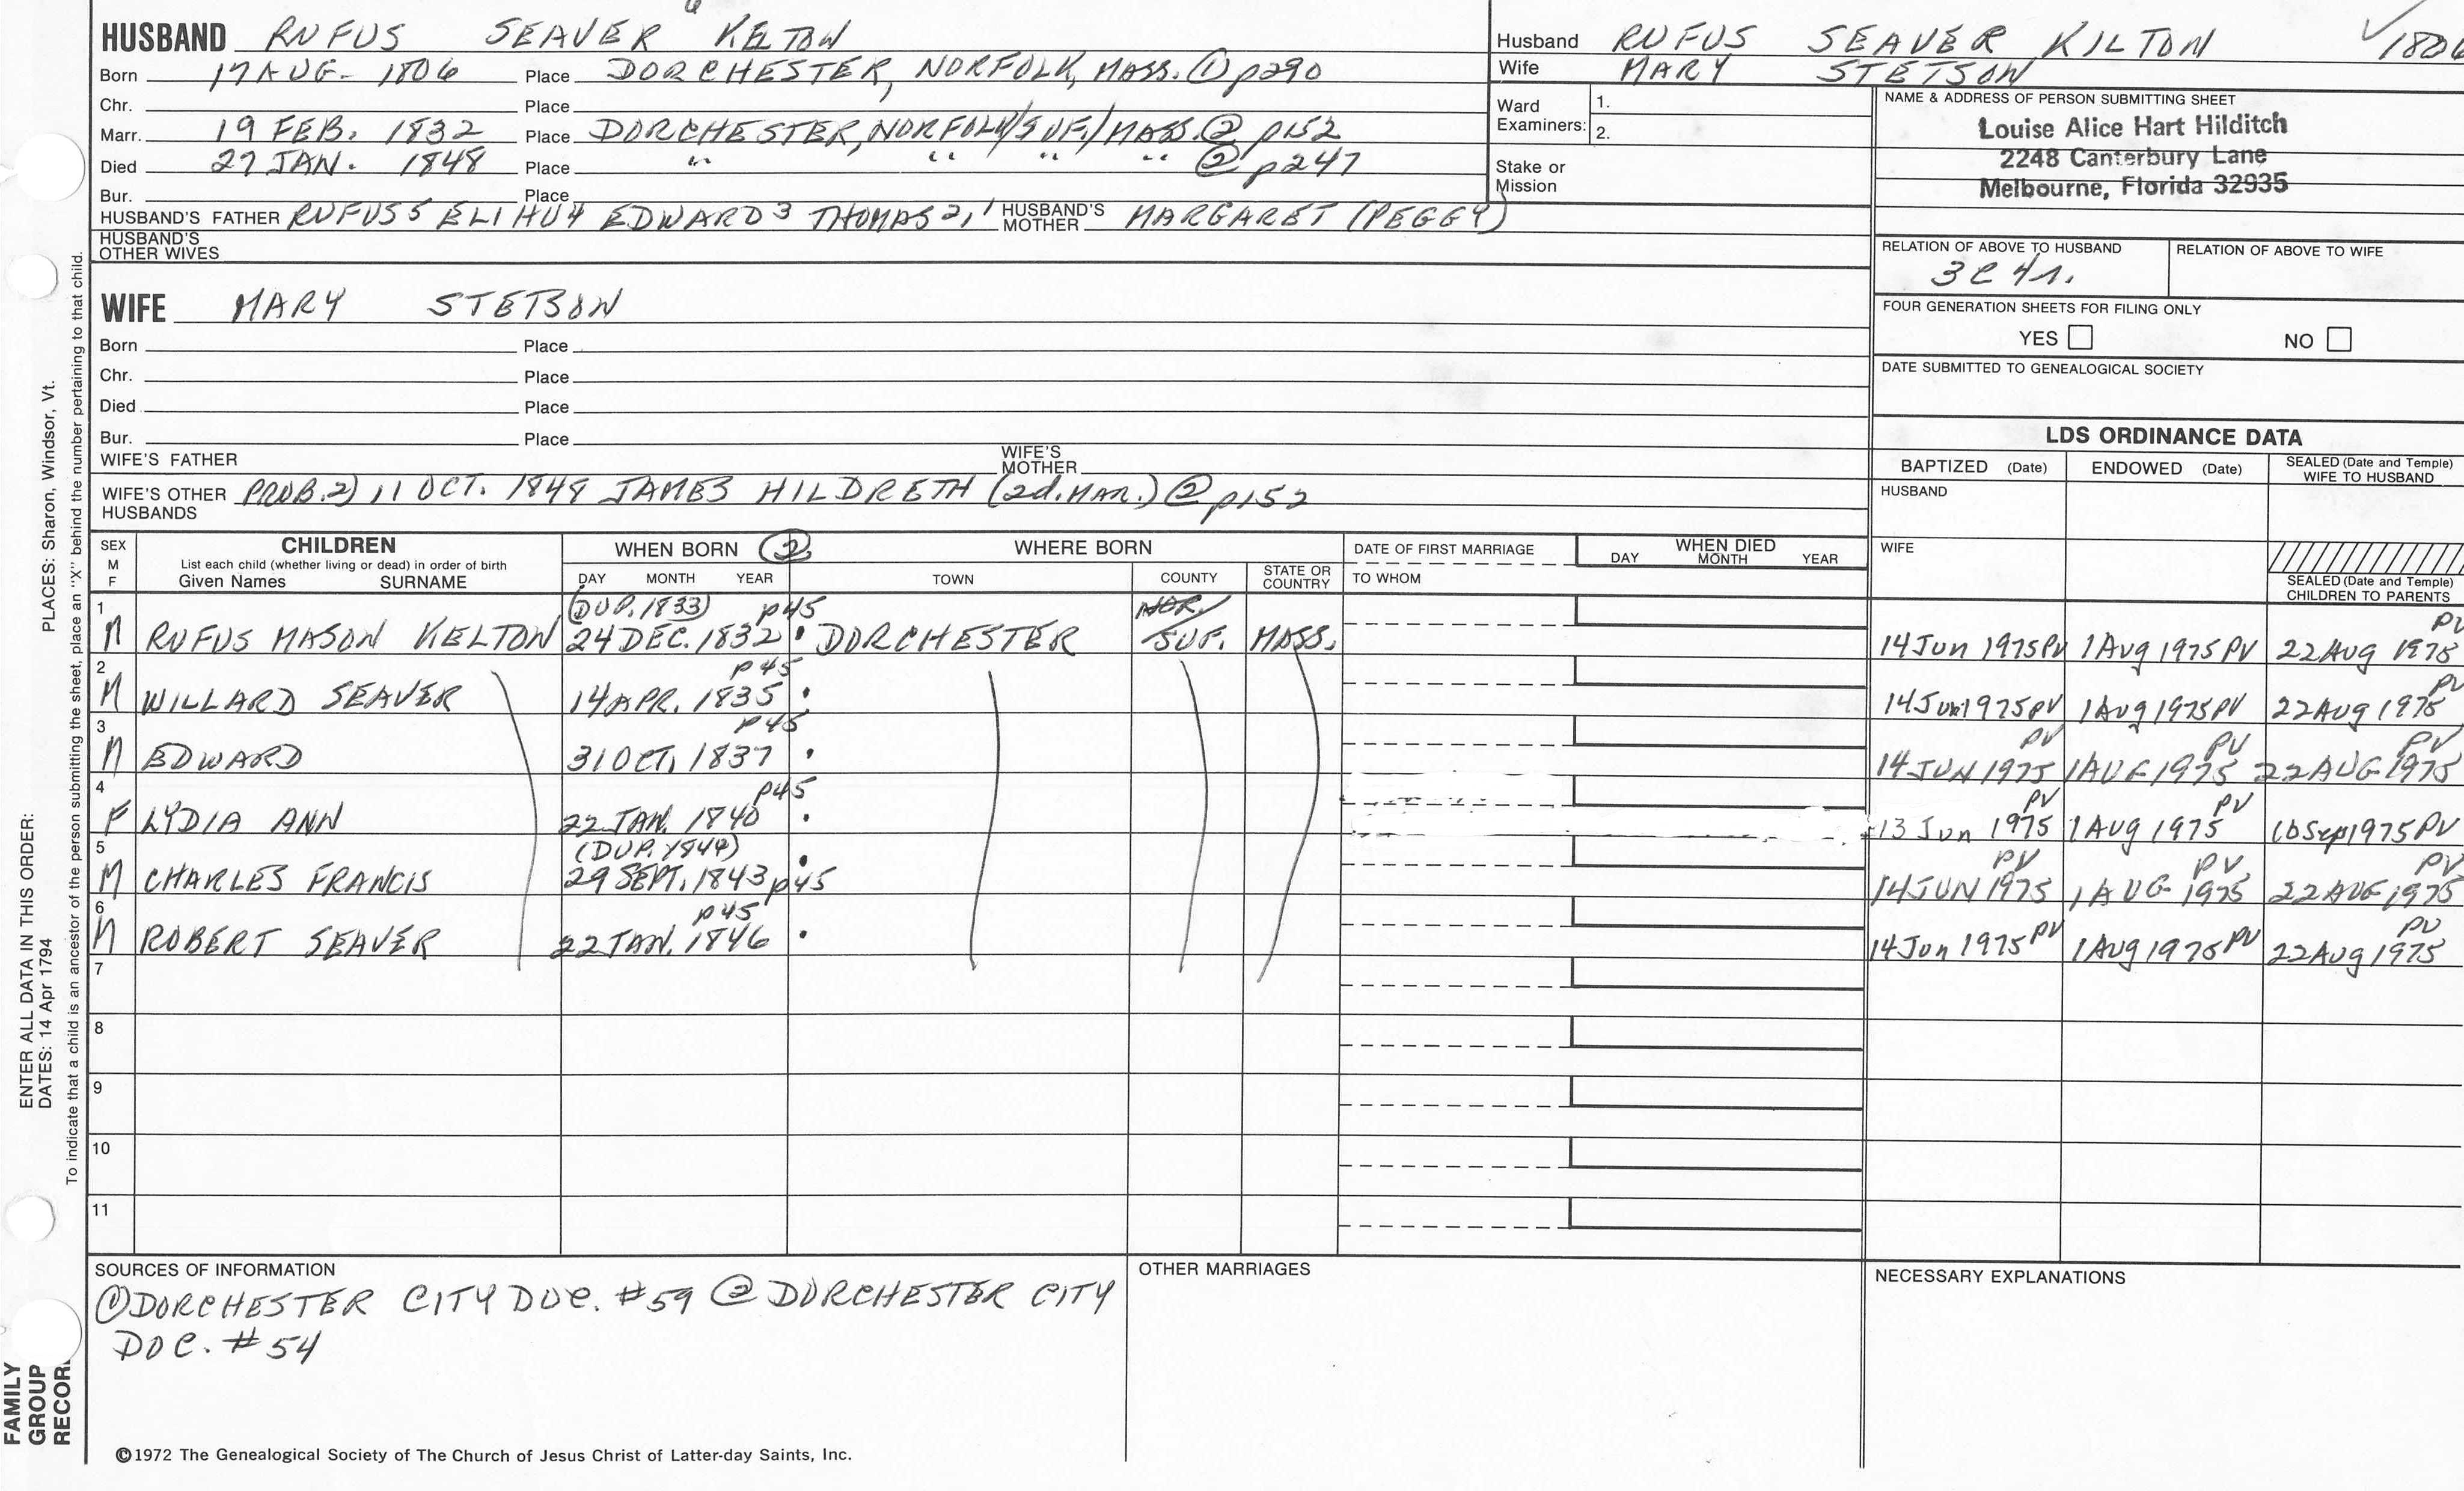 HUSBAND RUFUS SEAVER KELTON
Born 17 AUG. 1806 Place DORCHESTER, NORFOLK, MASS. ① p290
Chr. Place
Marr. 19 FEB. 1832 Place DORCHESTER, NORFOLK/SUF./MASS. ② p152
Died 27 JAN. 1848 Place " " " " ② p247
Bur. Place
HUSBAND'S FATHER RUFUS 5 ELIHU 4 EDWARD 3 THOMAS 2,1 HUSBAND'S MOTHER MARGARET (PEGGY)
HUSBAND'S OTHER WIVES
Husband RUFUS SEAVER KILTON ✓1806
Wife MARY STETSON
Ward Examiners: 1.
2.
Stake or Mission
NAME & ADDRESS OF PERSON SUBMITTING SHEET
Louise Alice Hart Hilditch
2248 Canterbury Lane
Melbourne, Florida 32935
RELATION OF ABOVE TO HUSBAND
3C4r.
RELATION OF ABOVE TO WIFE
FOUR GENERATION SHEETS FOR FILING ONLY
YES NO
DATE SUBMITTED TO GENEALOGICAL SOCIETY
WIFE MARY STETSON
Born Place
Chr. Place
Died Place
Bur. Place
WIFE'S FATHER WIFE'S MOTHER
WIFE'S OTHER HUSBANDS PROB. 2) 11 OCT. 1848 JAMES HILDRETH (2d. MAR.) ② p152
LDS ORDINANCE DATA
BAPTIZED (Date) ENDOWED (Date) SEALED (Date and Temple) WIFE TO HUSBAND
HUSBAND
WIFE
SEALED (Date and Temple) CHILDREN TO PARENTS
SEX M F
CHILDREN
List each child (whether living or dead) in order of birth
Given Names SURNAME
WHEN BORN ②
DAY MONTH YEAR
WHERE BORN
TOWN COUNTY STATE OR COUNTRY
DATE OF FIRST MARRIAGE
TO WHOM
WHEN DIED
DAY MONTH YEAR
1 (DUP. 1833) p45 NOR./
M RUFUS MASON KELTON 24 DEC. 1832 DORCHESTER SUF. MASS. 14 Jun 1975 PV 1 Aug 1975 PV 22 Aug 1975 PV
2 p45
M WILLARD SEAVER 14 APR. 1835 14 Jun 1975 PV 1 Aug 1975 PV 22 Aug 1975 PV
3 p45
M EDWARD 31 OCT. 1837 14 JUN 1975 PV 1 AUG 1975 PV 22 AUG 1975 PV
4 p45
F LYDIA ANN 22 JAN. 1840 13 Jun 1975 PV 1 AUG 1975 PV 16 Sep 1975 PV
5 (DUP. 1844)
M CHARLES FRANCIS 29 SEPT. 1843 p45 14 JUN 1975 PV 1 AUG 1975 PV 22 AUG 1975 PV
6 p45
M ROBERT SEAVER 22 JAN. 1846 14 Jun 1975 PV 1 Aug 1975 PV 22 Aug 1975 PV
7
8
9
10
11
SOURCES OF INFORMATION
① DORCHESTER CITY DOC. #59 ② DORCHESTER CITY
DOC. #54
OTHER MARRIAGES
NECESSARY EXPLANATIONS
©1972 The Genealogical Society of The Church of Jesus Christ of Latter-day Saints, Inc.
FAMILY GROUP RECOR
ENTER ALL DATA IN THIS ORDER:
DATES: 14 Apr 1794 PLACES: Sharon, Windsor, Vt.
To indicate that a child is an ancestor of the person submitting the sheet, place an "X" behind the number pertaining to that child.